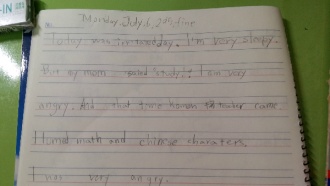 -IN
Monday, July 6, 20, fine
Today was I'm very sleepy.
But my mom said "study". I am very
angry. And that time human teacher came.
Human math and chinese charaters.
I was very angry.